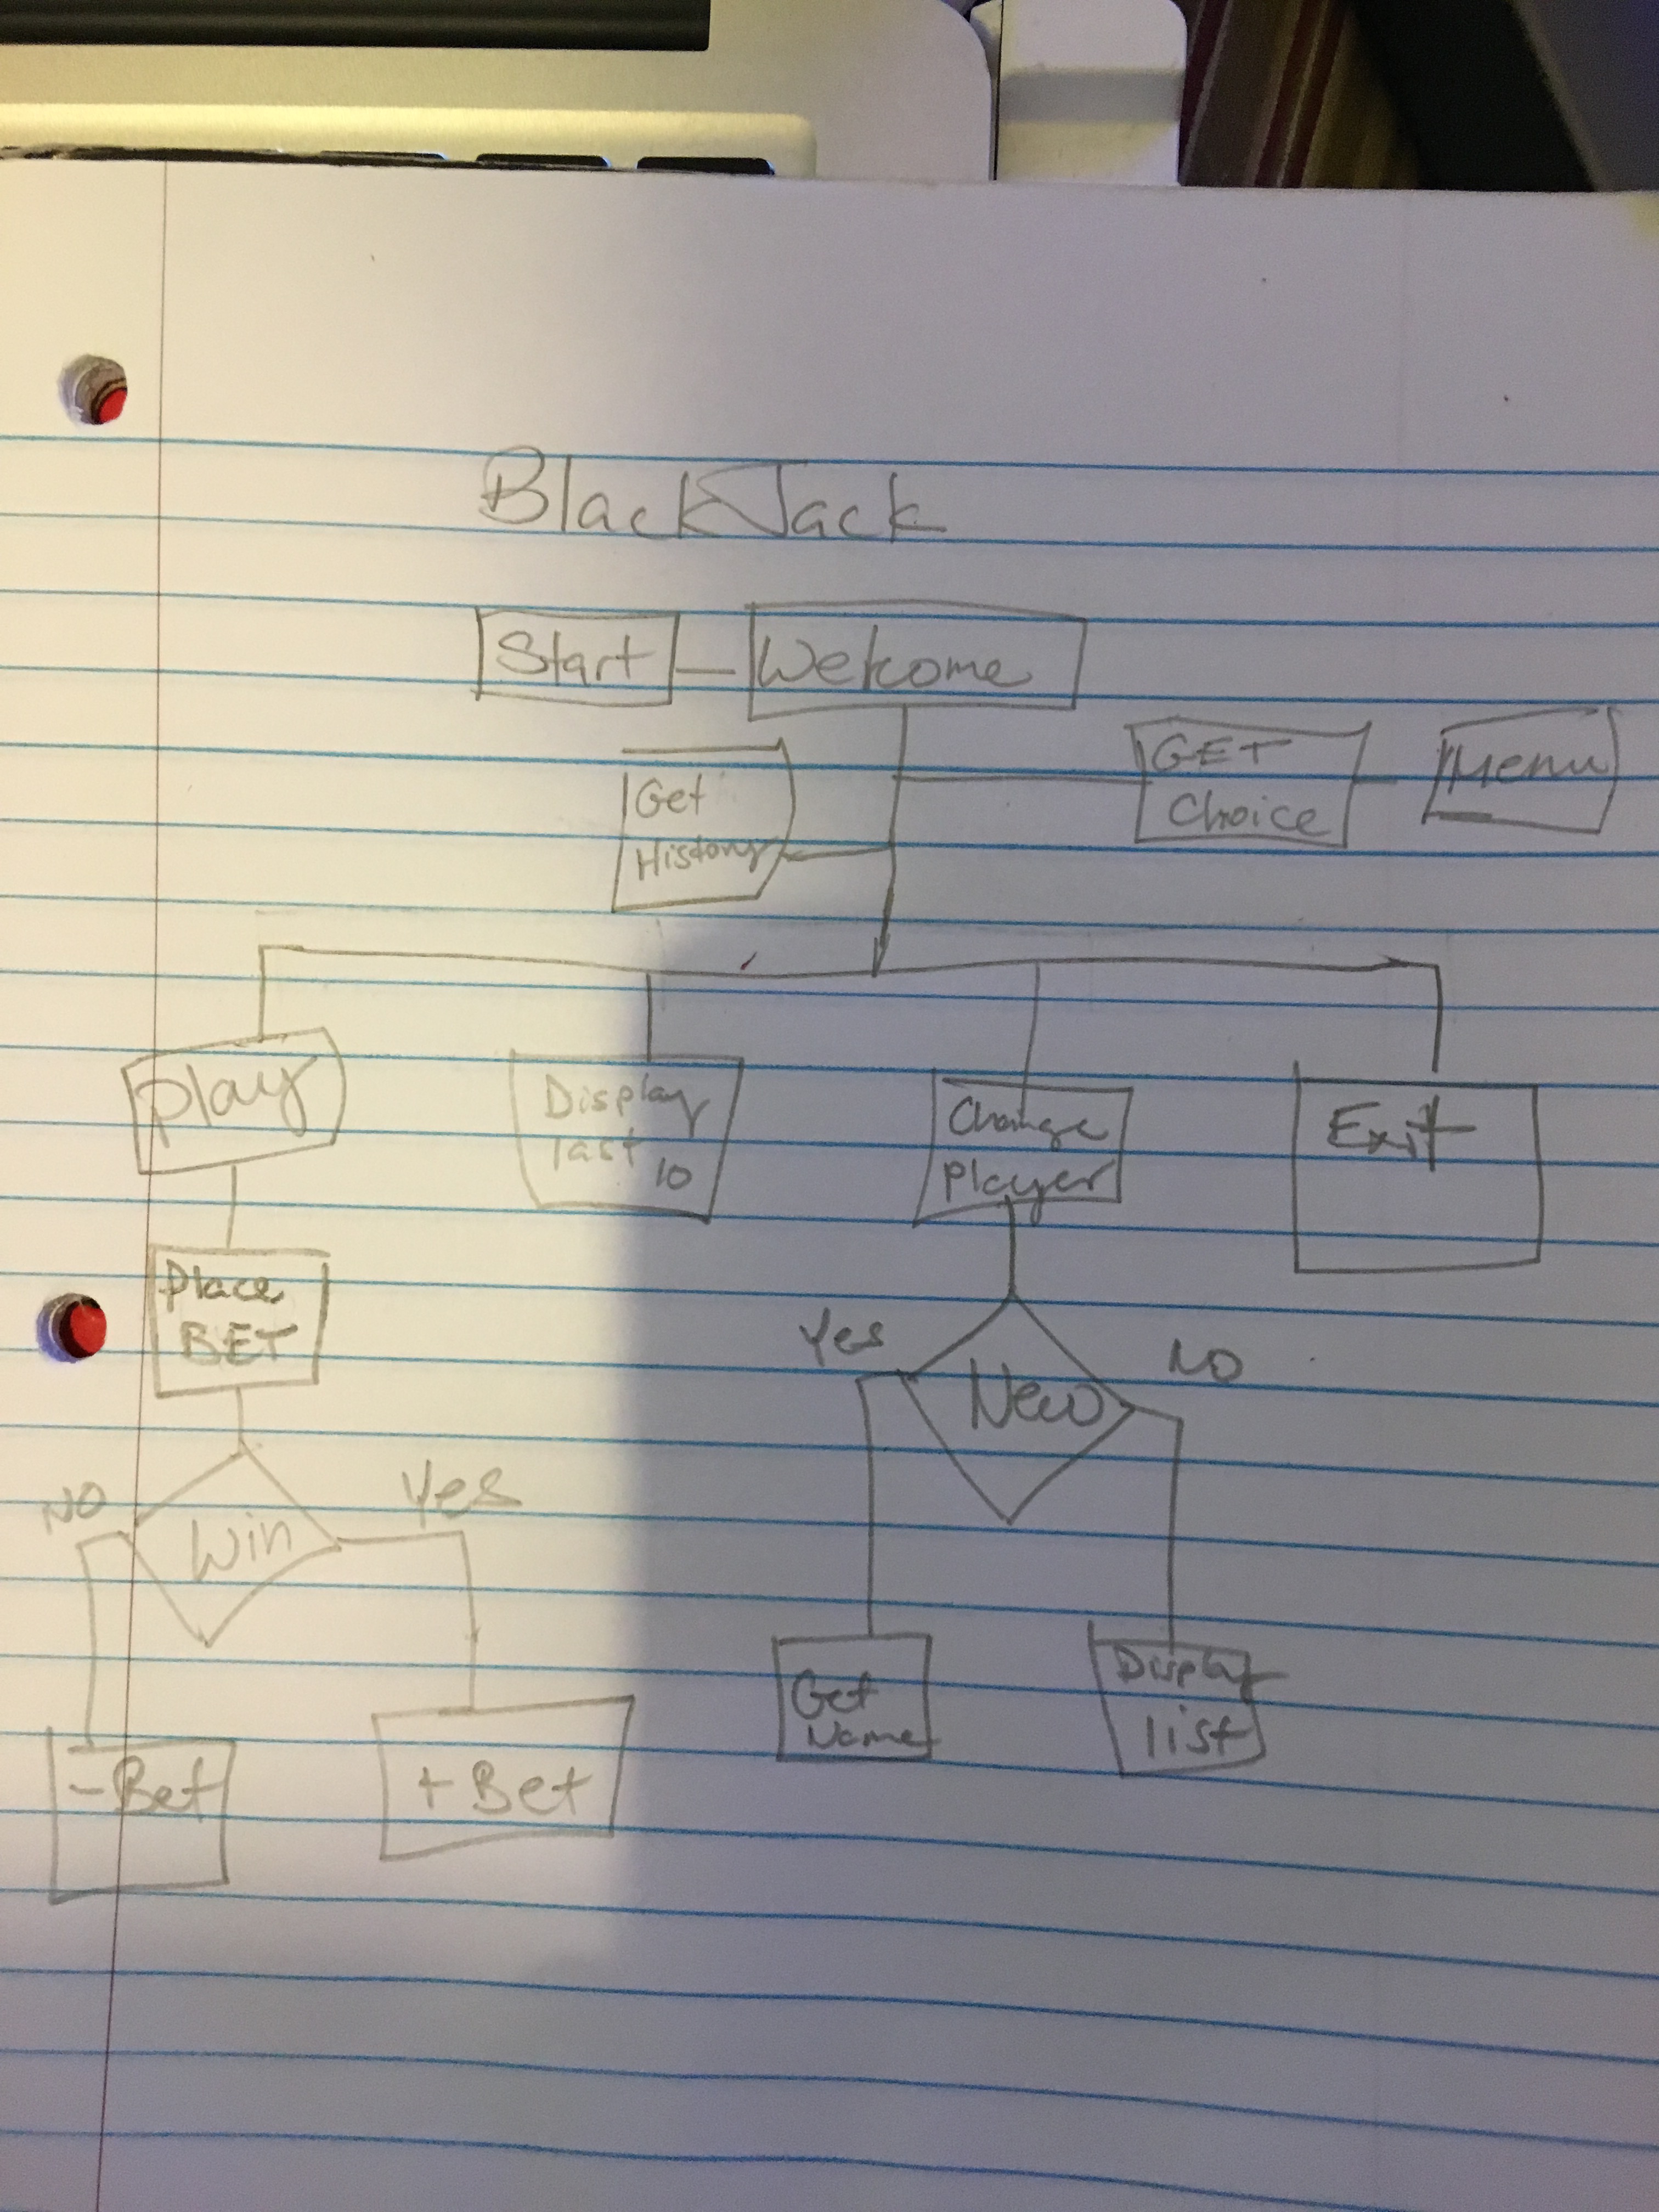 BlackJack
Start
Welcome
Get
History
GET
Choice
Menu
Play
Display
last 10
Change
Player
Exit
Place
BET
Yes
NO
New
NO
Yes
Win
Get
Name
Display
list
- Bet
+ Bet